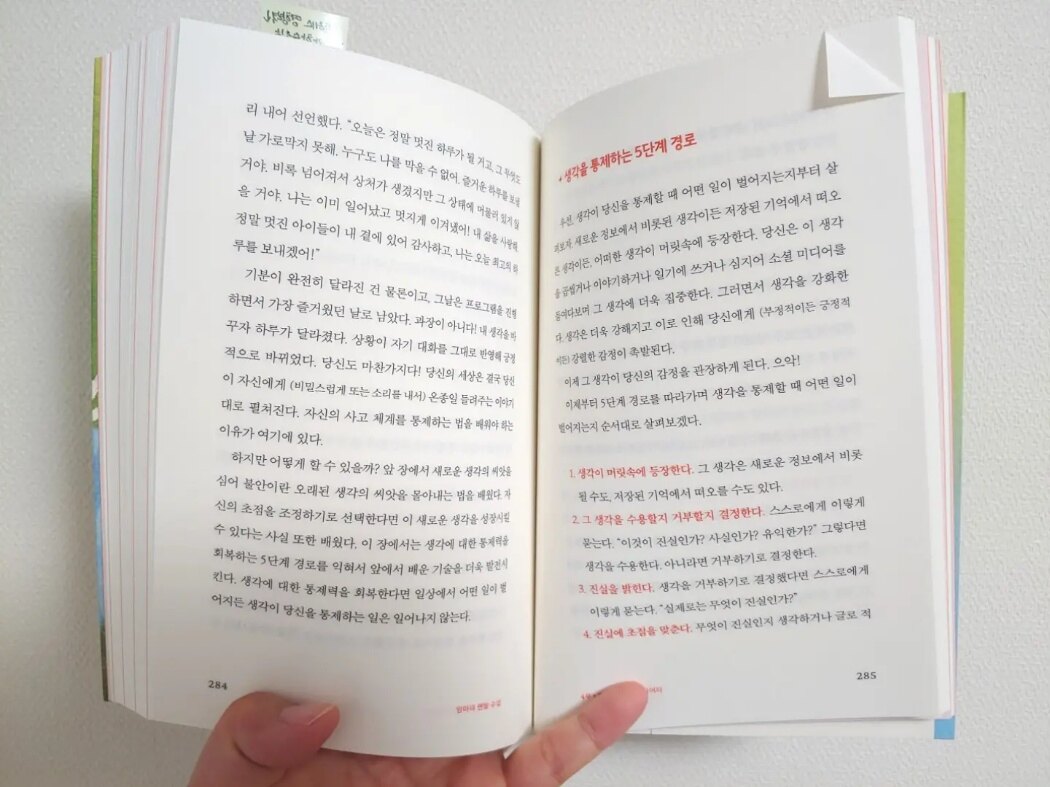 리 내어 선언했다. “오늘은 정말 멋진 하루가 될 거고, 그 무엇도
날 가로막지 못해. 누구도 나를 막을 수 없어. 즐거운 하루를 보낼
거야. 비록 넘어져서 상처가 생겼지만 그 상태에 머물러 있지 않
을 거야. 나는 이미 일어났고 멋지게 이겨냈어! 내 삶을 사랑해.
정말 멋진 아이들이 내 곁에 있어 감사하고, 나는 오늘 최고의 하
루를 보내겠어!”
기분이 완전히 달라진 건 물론이고, 그날은 프로그램을 진행
하면서 가장 즐거웠던 날로 남았다. 과장이 아니다! 내 생각을 바
꾸자 하루가 달라졌다. 상황이 자기 대화를 그대로 반영해 긍정
적으로 바뀌었다. 당신도 마찬가지다! 당신의 세상은 결국 당신
이 자신에게 (비밀스럽게 또는 소리를 내서) 온종일 들려주는 이야기
대로 펼쳐진다. 자신의 사고 체계를 통제하는 법을 배워야 하는
이유가 여기에 있다.
하지만 어떻게 할 수 있을까? 앞 장에서 새로운 생각의 씨앗을
심어 불안이란 오래된 생각의 씨앗을 몰아내는 법을 배웠다. 자
신의 초점을 조정하기로 선택한다면 이 새로운 생각을 성장시킬
수 있다는 사실 또한 배웠다. 이 장에서는 생각에 대한 통제력을
회복하는 5단계 경로를 익혀서 앞에서 배운 기술을 더욱 발전시
킨다. 생각에 대한 통제력을 회복한다면 일상에서 어떤 일이 벌
어지든 생각이 당신을 통제하는 일은 일어나지 않는다.
284
엄마의 멘탈 수업
+ 생각을 통제하는 5단계 경로
우선, 생각이 당신을 통제할 때 어떤 일이 벌어지는지부터 살
펴보자. 새로운 정보에서 비롯된 생각이든 저장된 기억에서 떠오
른 생각이든, 어떠한 생각이 머릿속에 등장한다. 당신은 이 생각
을 곱씹거나 이야기하거나 일기에 쓰거나 심지어 소셜 미디어를
들여다보며 그 생각에 더욱 집중한다. 그러면서 생각을 강화한
다. 생각은 더욱 강해지고 이로 인해 당신에게 (부정적이든 긍정적
이든) 강렬한 감정이 촉발된다.
이제 그 생각이 당신의 감정을 관장하게 된다. 으악!
이제부터 5단계 경로를 따라가며 생각을 통제할 때 어떤 일이
벌어지는지 순서대로 살펴보겠다.
1. 생각이 머릿속에 등장한다. 그 생각은 새로운 정보에서 비롯
될 수도, 저장된 기억에서 떠오를 수도 있다.
2. 그 생각을 수용할지 거부할지 결정한다. 스스로에게 이렇게
묻는다. “이것이 진실인가? 사실인가? 유익한가?” 그렇다면
생각을 수용한다. 아니라면 거부하기로 결정한다.
3. 진실을 밝힌다. 생각을 거부하기로 결정했다면 스스로에게
이렇게 묻는다. “실제로는 무엇이 진실인가?”
4. 진실에 초점을 맞춘다. 무엇이 진실인지 생각하거나 글로 적
285